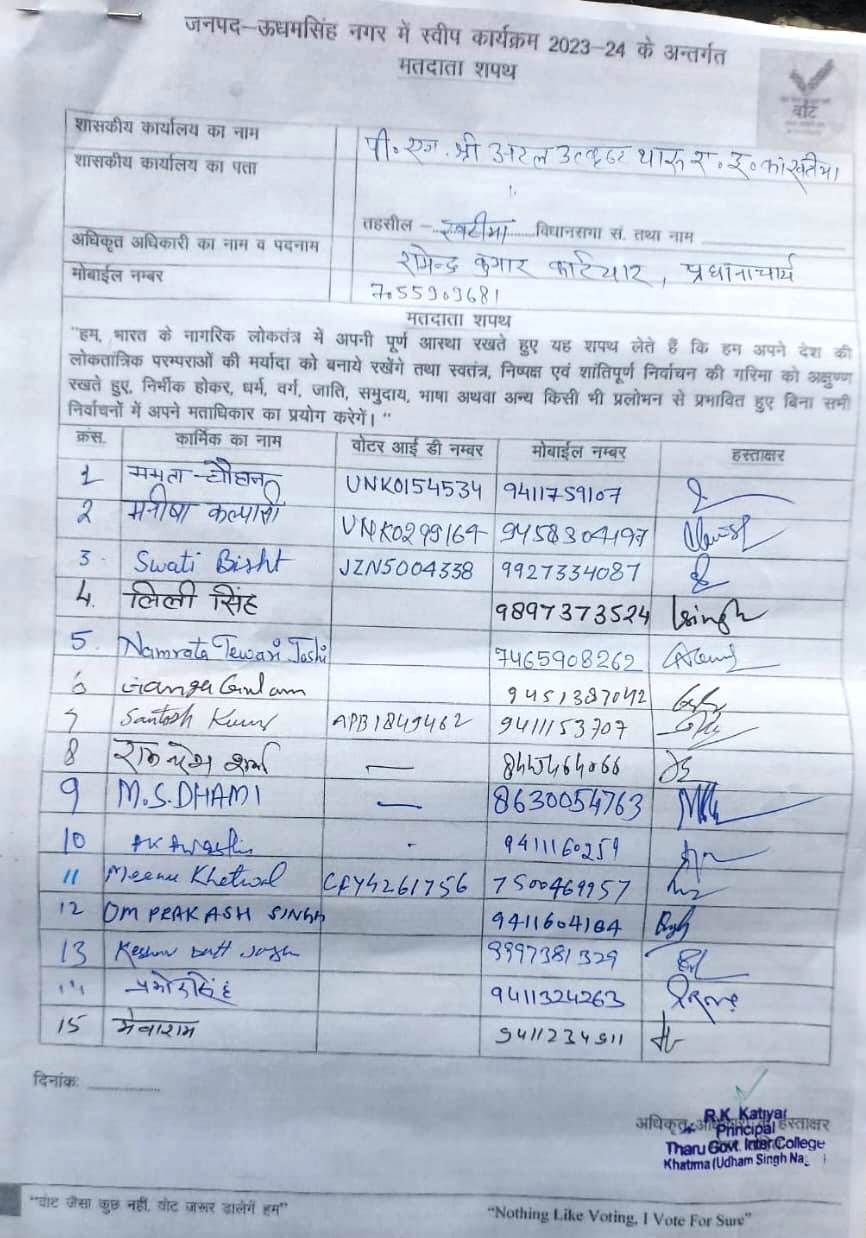 जनपद-ऊधमसिंह नगर में स्वीप कार्यक्रम 2023-24 के अन्तर्गत
मतदाता शपथ
वोट
शासकीय कार्यालय का नाम
पी. एम. श्री अटल उत्कृष्ट थारू रा. इ. का खटीमा
शासकीय कार्यालय का पता
तहसील - खटीमा विधानसभा सं. तथा नाम
अधिकृत अधिकारी का नाम व पदनाम
कुमार कटियार, प्रधानाचार्य
मोबाईल नम्बर
7055909681
मतदाता शपथ
"हम, भारत के नागरिक लोकतंत्र में अपनी पूर्ण आस्था रखते हुए यह शपथ लेते हैं कि हम अपने देश की
लोकतांत्रिक परम्पराओं की मर्यादा को बनाये रखेंगे तथा स्वतंत्र, निष्पक्ष एवं शांतिपूर्ण निर्वाचन की गरिमा को अक्षुण्ण
रखते हुए, निर्भीक होकर, धर्म, वर्ग, जाति, समुदाय, भाषा अथवा अन्य किसी भी प्रलोभन से प्रभावित हुए बिना सभी
निर्वाचनों में अपने मताधिकार का प्रयोग करेगें। "
क्रंस. कार्मिक का नाम वोटर आई डी नम्बर मोबाईल नम्बर हस्ताक्षर
1 ममता चौहान UNK0154534 9411759107
2 मनीषा कल्पासी UNK0299164 9458304197
3 Swati Bisht JZN5004338 9927334087
4. लिली सिंह 9897373524 Singh
5 Namrata Tewari Joshi 7465908262
6 9451387042
7 Santosh Kumar APB1849462 9411153707
8 शर्मा — 8445464066
9 M.S.DHAMI — 8630054763
10 AK Awasthi - 9411160259
11 Meenu Khetwal CFY4261756 7500469957
12 OM PRAKASH SINGH 9411604164
13 Keshav Datt Joshi 9997381329
14 प्रमोद सिंह 9411324263
15 मेवाराम 9411234911
दिनांक:
अधिकृत हस्ताक्षर
R.K. Katiyar
Principal
Tharu Govt. Inter College
Khatima (Udham Singh Na
"वोट जैसा कुछ नहीं, वोट जरूर डालेगें हम"
"Nothing Like Voting, I Vote For Sure"